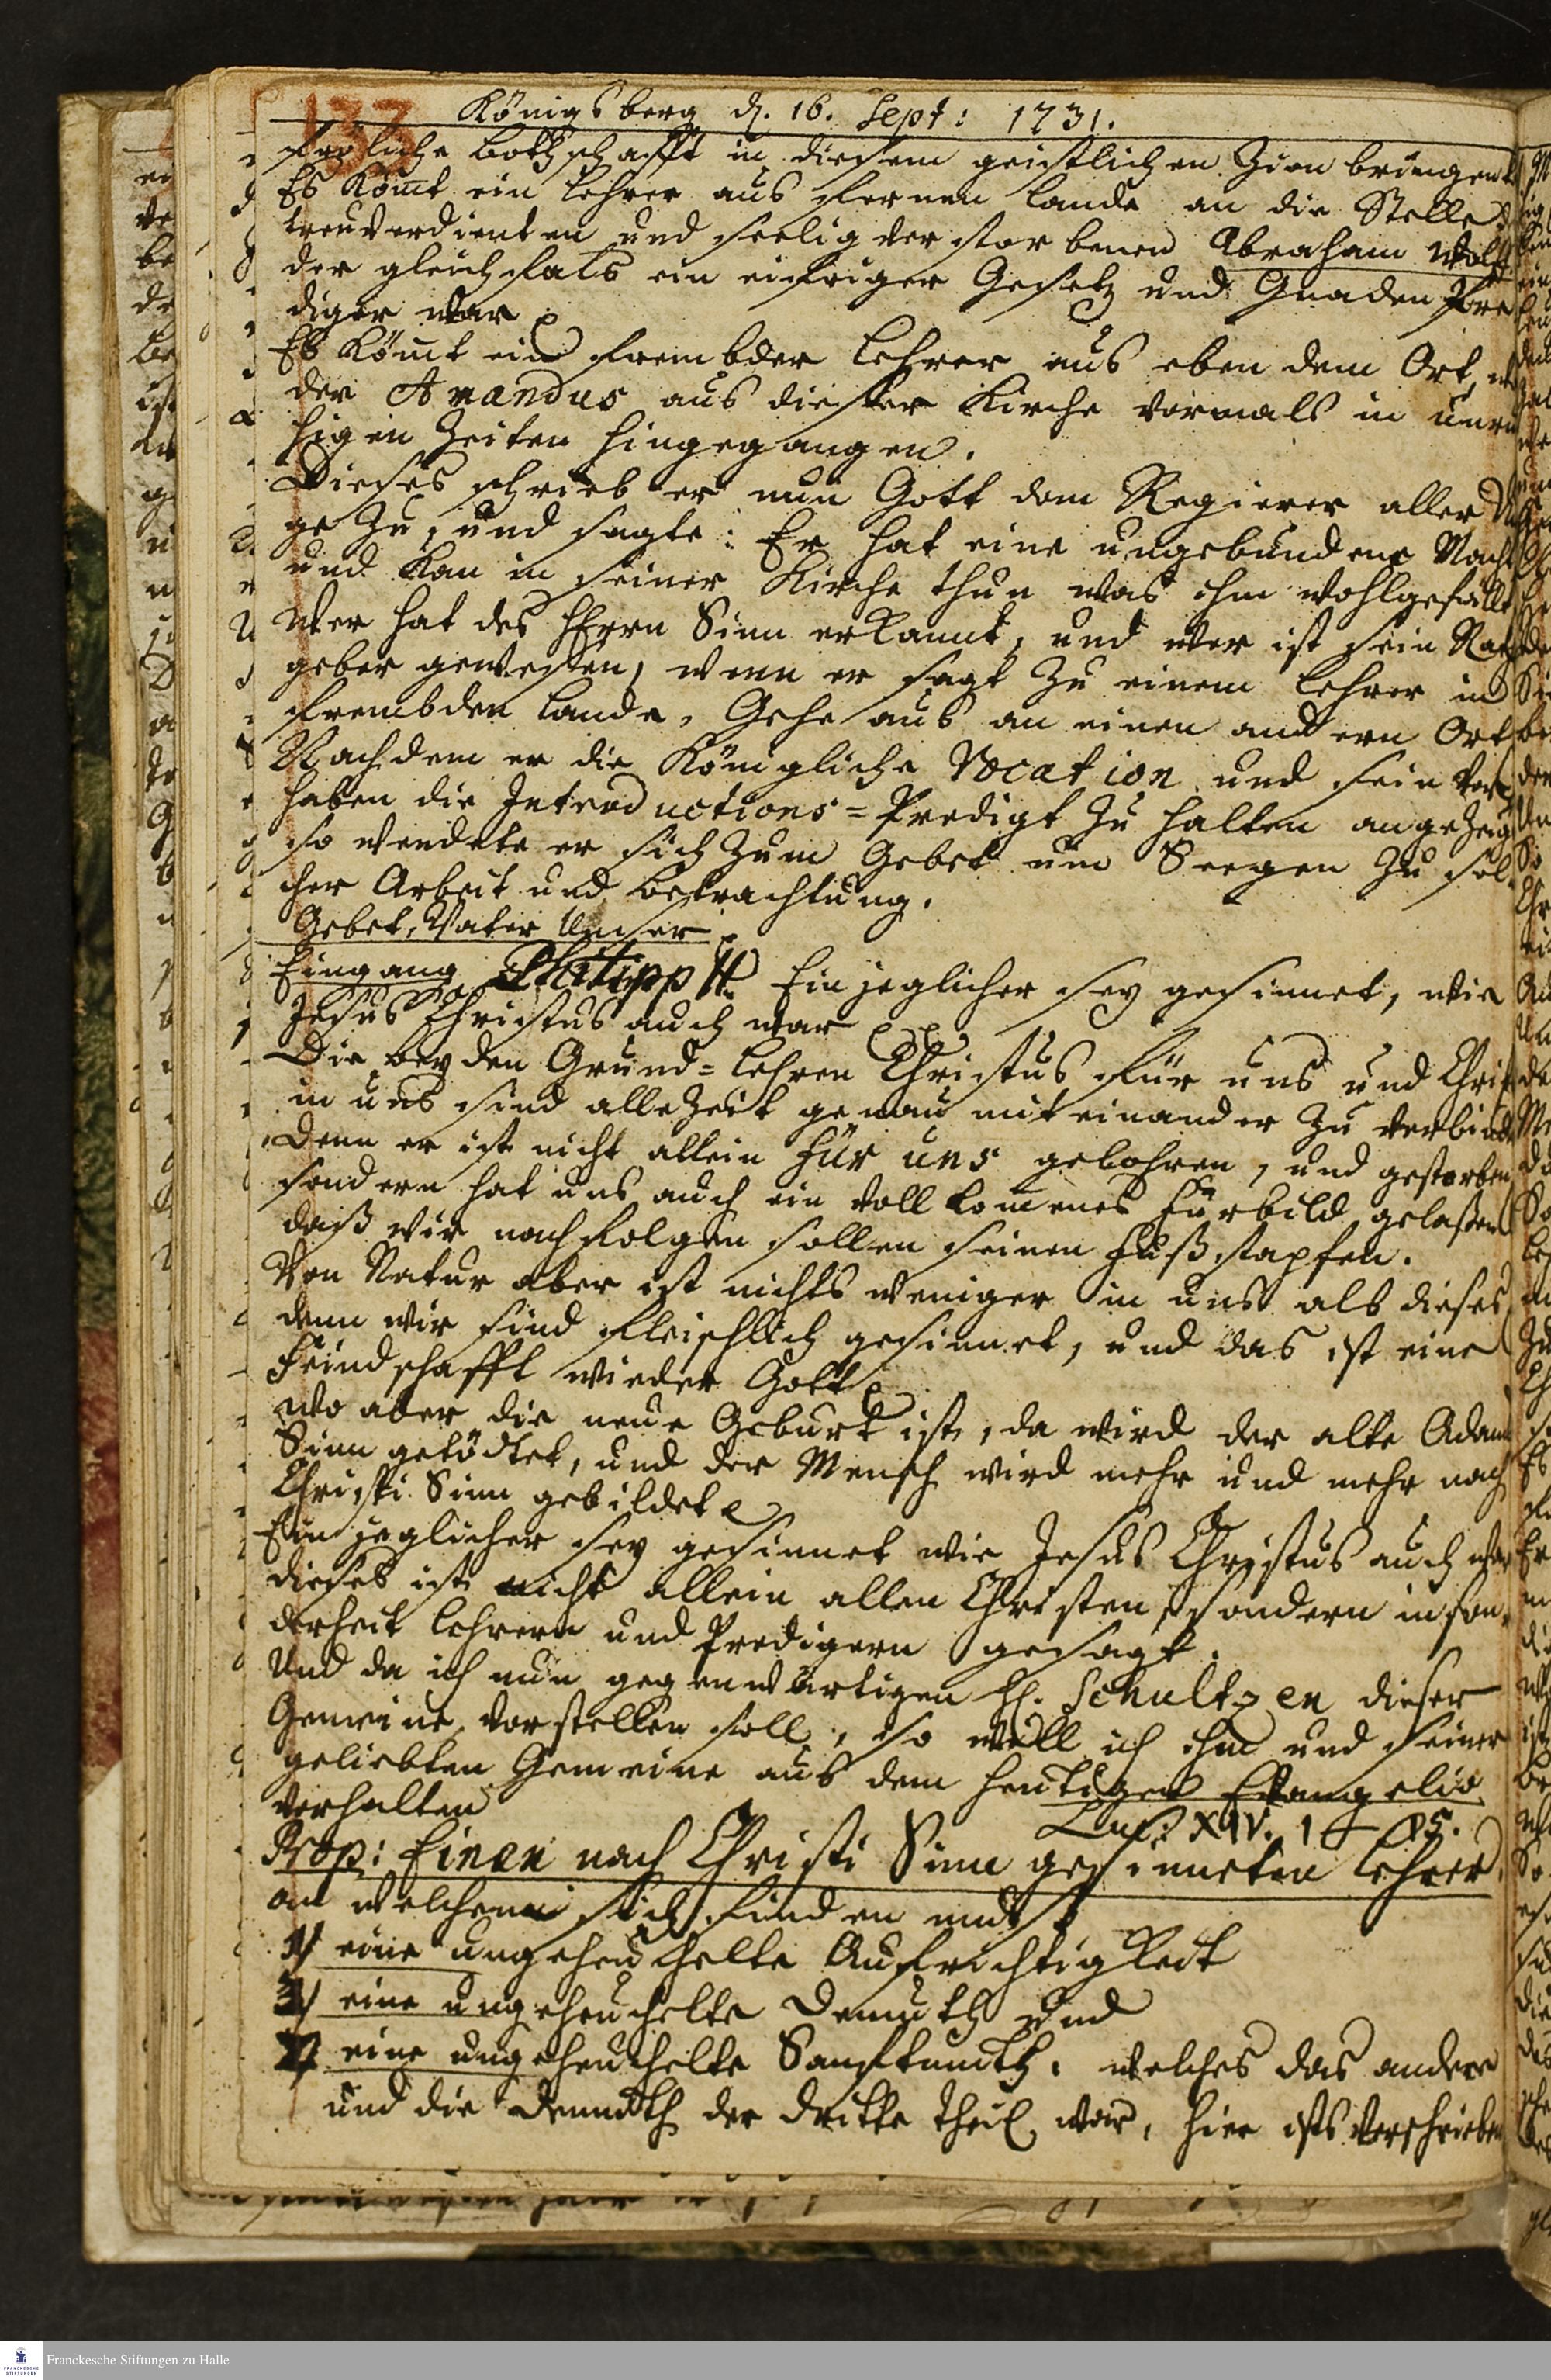 133
Königsberg d. 16. Sept: 1731.
fröliche Bothschafft in diesem geistlichen Zion bringen
Es kömt ein Lehrer aus fernen Lande an die Stelle
treuverdienten und seelig verstorbenen Abraham Wolff
der gleichfals ein eifriger Gesetz und Gnaden Pre
diger war
Es kömt ein frembder Lehrer aus eben dem Ort,
der Amandus aus dieser Kirche vormals in unru
higen Zeiten hingegangen.
Dieses schrieb er nun Gott dem Regierer aller
ge zu, und sagte: Er hat eine ungebundene Macht
und kan in seiner Kirche thun was ihm wohlgefällt,
Wer hat des HErrn Sinn erkannt, und wer ist sein Rath
geber gewesen, wenn er sagt zu einem Lehrer im
frembden Lande, Gehe aus an einen andern Ort
Nachdem er die Königliche Vocation und sein Vor
haben die Introductions-Predigt zu halten angezeigt
so wendete er sich zum Gebet um Seegen zu sol
cher Arbeit und Betrachtung.
Gebet, Vater Unser
Eingang Philipp II. Ein jeglicher sey gesinnet, wie
Jesus Christus auch war
Die beyden Grund-Lehren Christus für uns und Christ
in uns sind allezeit genau mit einander zu verbinden
Denn er ist nicht allein für uns gebohren, und gestorben
sondern hat uns auch ein vollkommenes Fürbild gelaßen
daß wir nachfolgen sollen seinen Fußstapfen.
Von Natur aber ist nichts weniger in uns als dieses,
denn wir sind fleischlich gesinnet, und das ist eine
Feindschafft wieder Gott
Wo aber die neue Geburt ist, da wird der alte Adams
Sinn getödtet, und der Mensch wird mehr und mehr nach
Christi Sinn gebildet
Ein jeglicher sey gesinnet wie Jesus Christus auch war
dieses ist nicht allein allen Christen, sondern inson
derheit Lehrern und Predigern gesagt.
Und da ich nun gegenwärtigen H. Schultzen dieser
Gemeine vorstellen soll, so will ich ihm und seiner
geliebten Gemeine aus dem heutigen Evangelio
vorhalten
Luc: XIV. 1
Prop: Einen nach Christi Sinn gesinneten Lehrer,
an welchem sich finden muß
1) eine ungeheuchelte Aufrichtigkeit
3) eine ungeheuchelte Demuth und
2) eine ungeheuchelte Sanftmuth. welches das andere
und die Demuth der dritte Theil war, hier ists verschrieben
Franckesche Stiftungen zu Halle